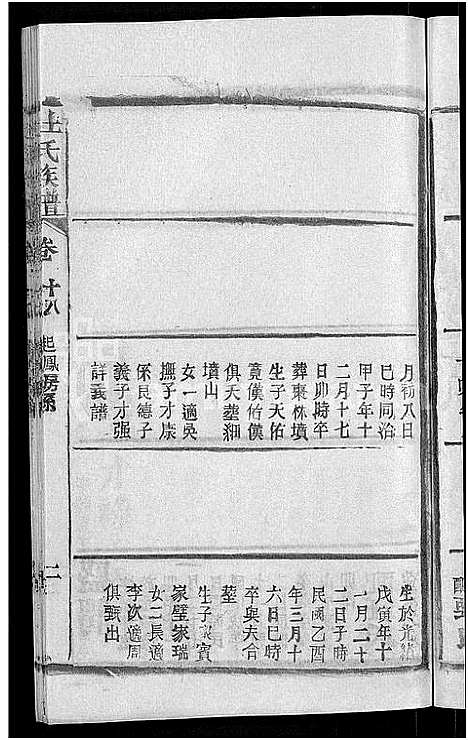 王氏族譜
卷十八
起鳳房系
二
月初八日
巳時同治
甲子年十
二月十七
日卯時卒
葬棗林墳
生子天佑
俱天葬
墳山
女一適吳
撫子才康
係良德子
義子才强
詳義譜
生於光緒
戊寅年十
一月二十
二日子時
民國乙酉
年三月十
六日巳時
卒與夫合
塋
生子家寶
家璧家瑞
女二長適
李次適周
俱甄出